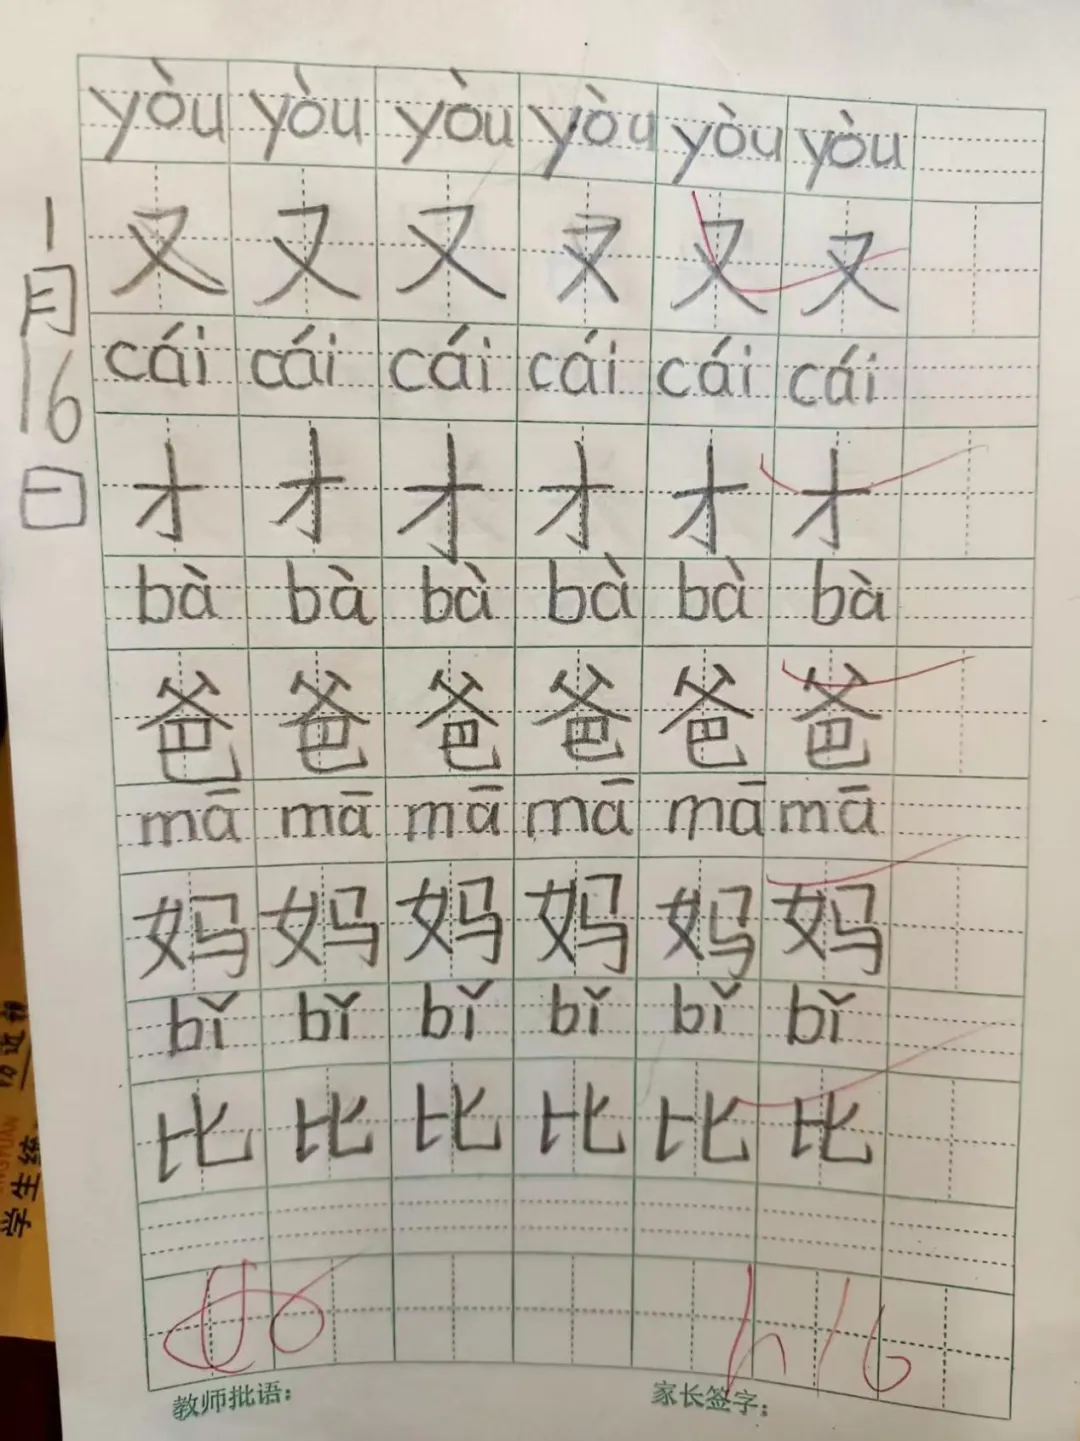 1月16日
yòu yòu yòu yòu yòu yòu
又 又 又 又 又 又
cái cái cái cái cái cái
才 才 才 才 才 才
bà bà bà bà bà bà
爸 爸 爸 爸 爸 爸
mā mā mā mā mā mā
妈 妈 妈 妈 妈 妈
bǐ bǐ bǐ bǐ bǐ bǐ
比 比 比 比 比 比
教师批语: 家长签字:
学生练